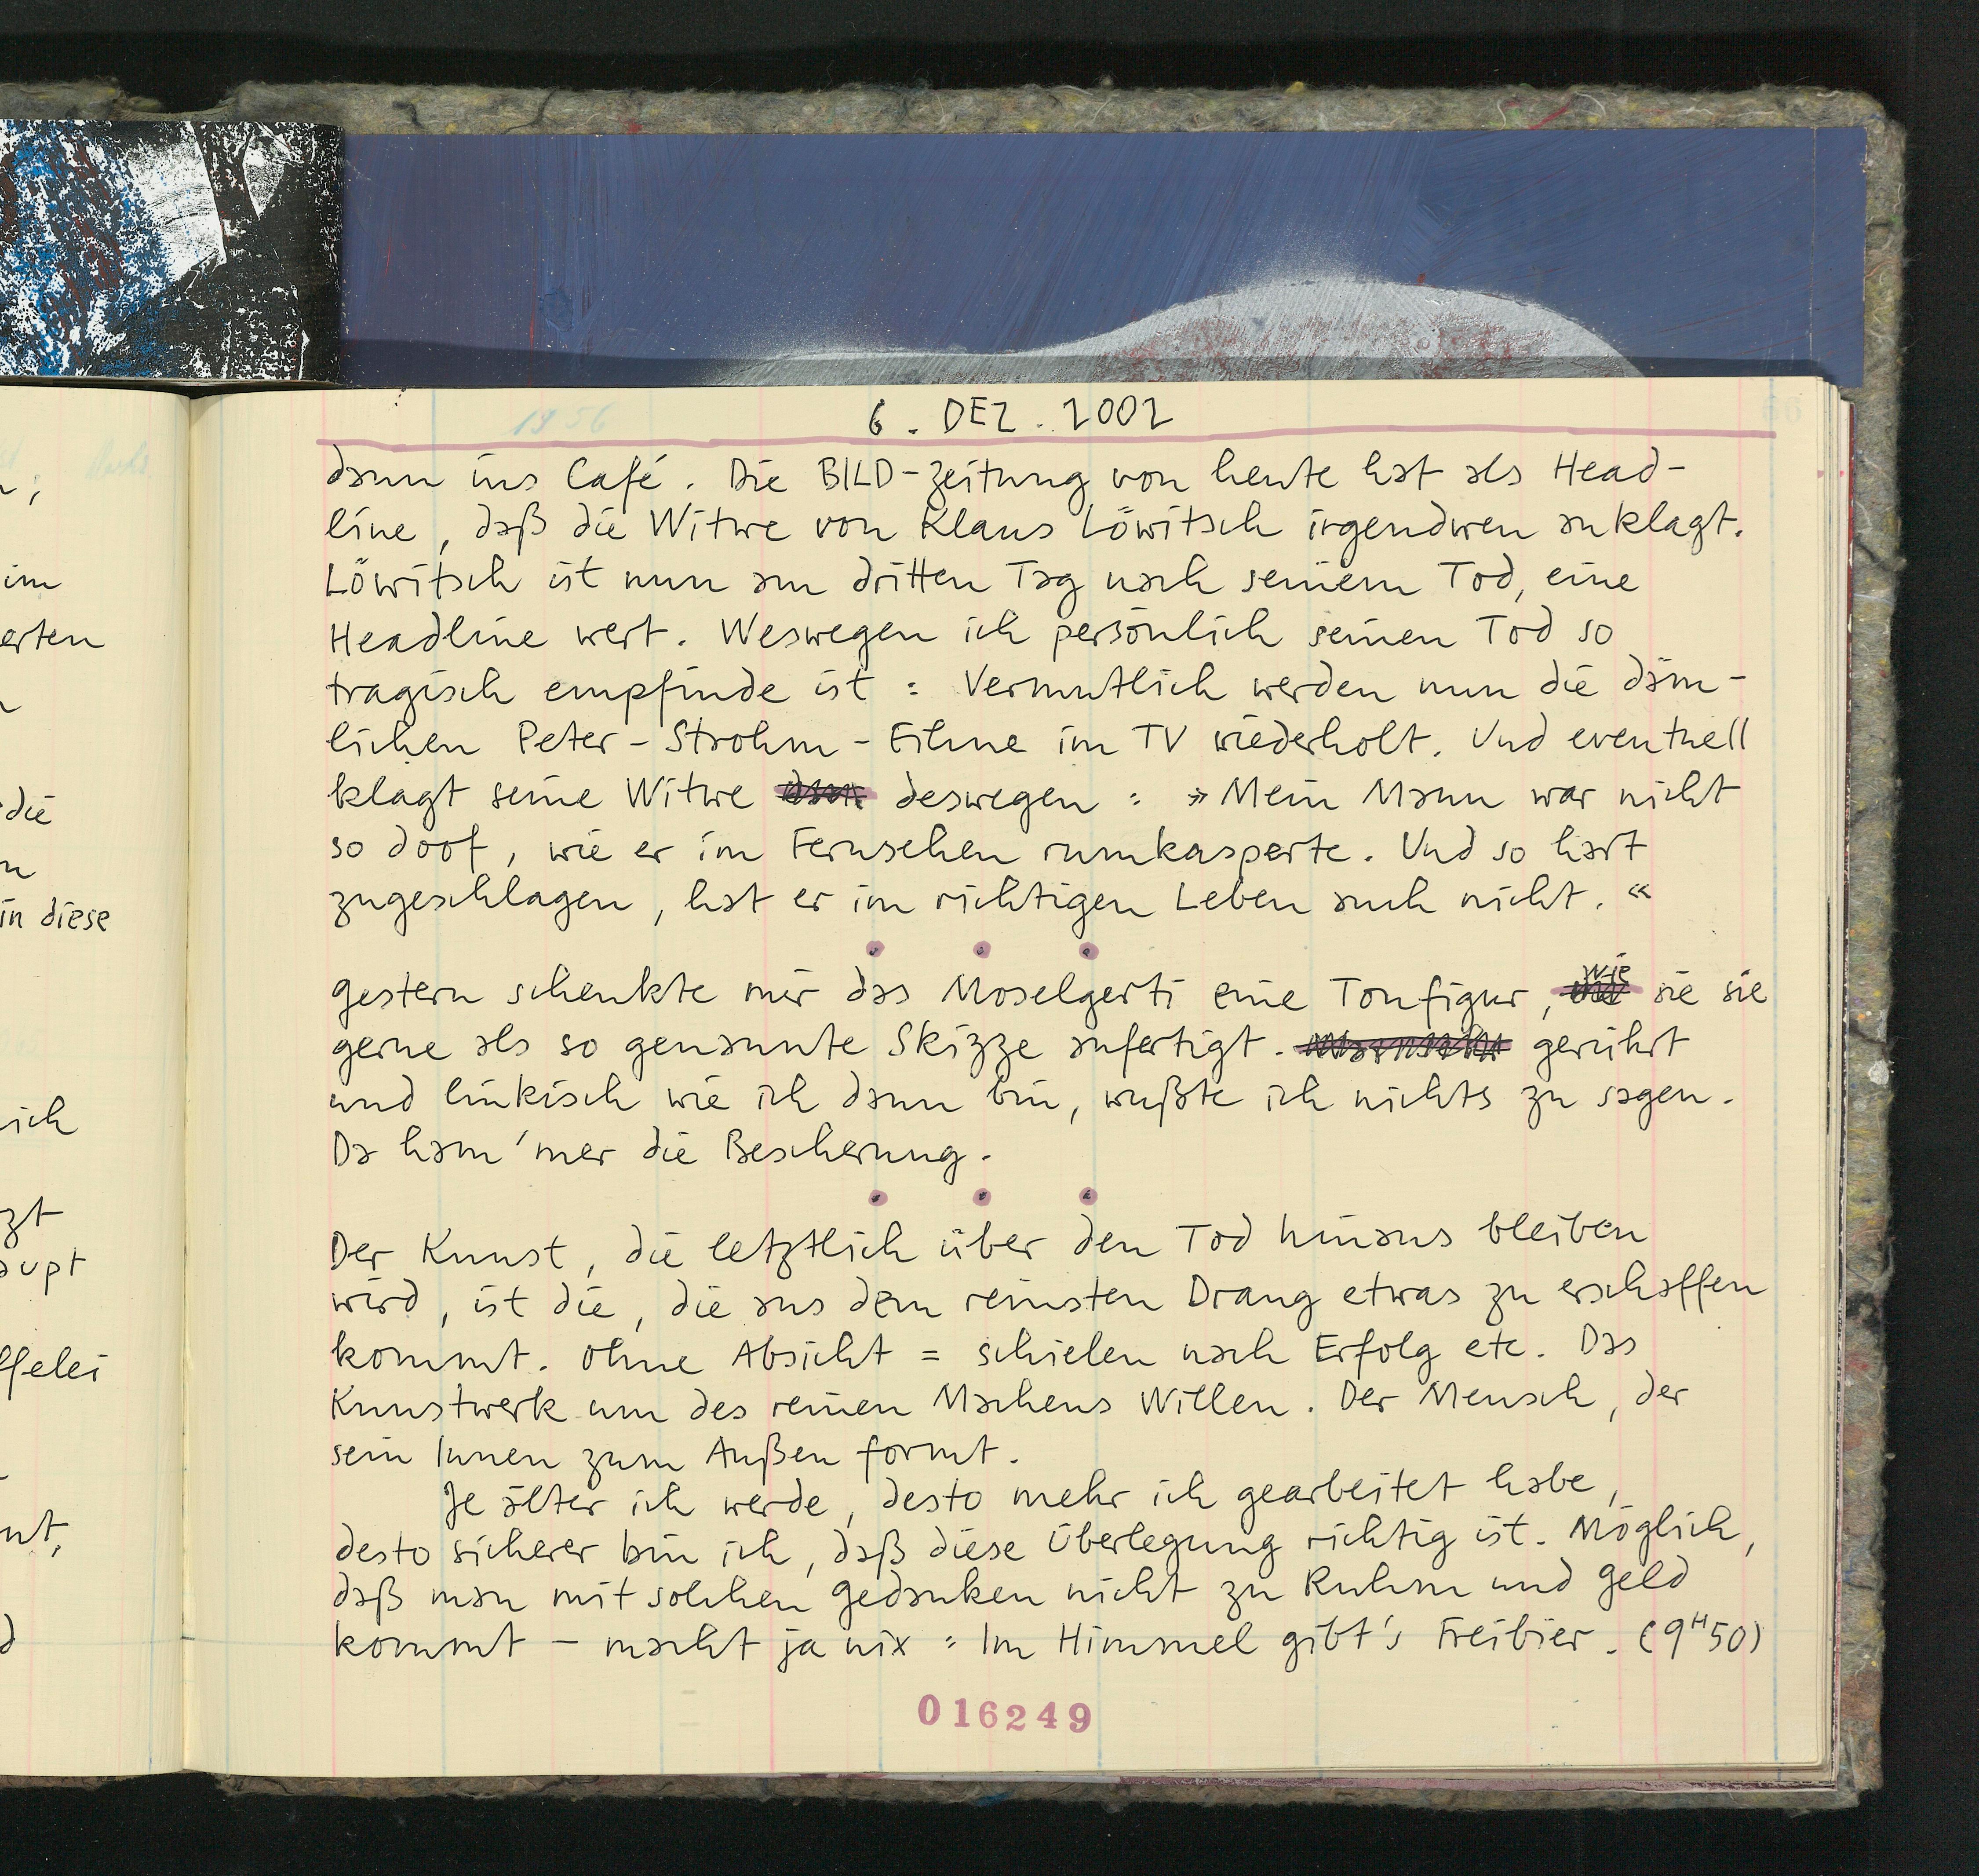 6. DEZ. 2002
dann ins Café. Die BILD-Zeitung von heute hat als Head-
line, daß die Witwe von Klaus Löwitsch irgendwen anklagt.
Löwitsch ist nun am dritten Tag nach seinem Tod, eine
Headline wert. Weswegen ich persönlich seinen Tod so
tragisch empfinde ist: Vermutlich werden nun die däm-
lichen Peter-Strohm-Filme im TV wiederholt. Und eventuell
klagt seine Witwe deswegen: »Mein Mann war nicht
so doof, wie er im Fernsehen rumkasperte. Und so hart
zugeschlagen, hat er im richtigen Leben auch nicht.«
gestern schenkte mir das Moselgerti eine Tonfigur, wie sie sie
gerne als so genannte Skizze anfertigt. gerührt
und linkisch wie ich dann bin, wußte ich nichts zu sagen.
Da ham'mer die Bescherung.
Der Kunst, die letztlich über den Tod hinaus bleiben
wird, ist die, die aus dem reinsten Drang etwas zu erschaffen
kommt. ohne Absicht = schielen nach Erfolg etc. Das
Kunstwerk um des reinen Machens Willen. Der Mensch, der
sein Innen zum Außen formt.
Je älter ich werde, desto mehr ich gearbeitet habe,
desto sicherer bin ich, daß diese Überlegung richtig ist. Möglich,
daß man mit solchen gedanken nicht zu Ruhm und geld
kommt – macht ja nix: Im Himmel gibt's Freibier. (9H50)
016249
1956
66
im
erten
die
in diese
ich
zt
aupt
ffelei
nt,